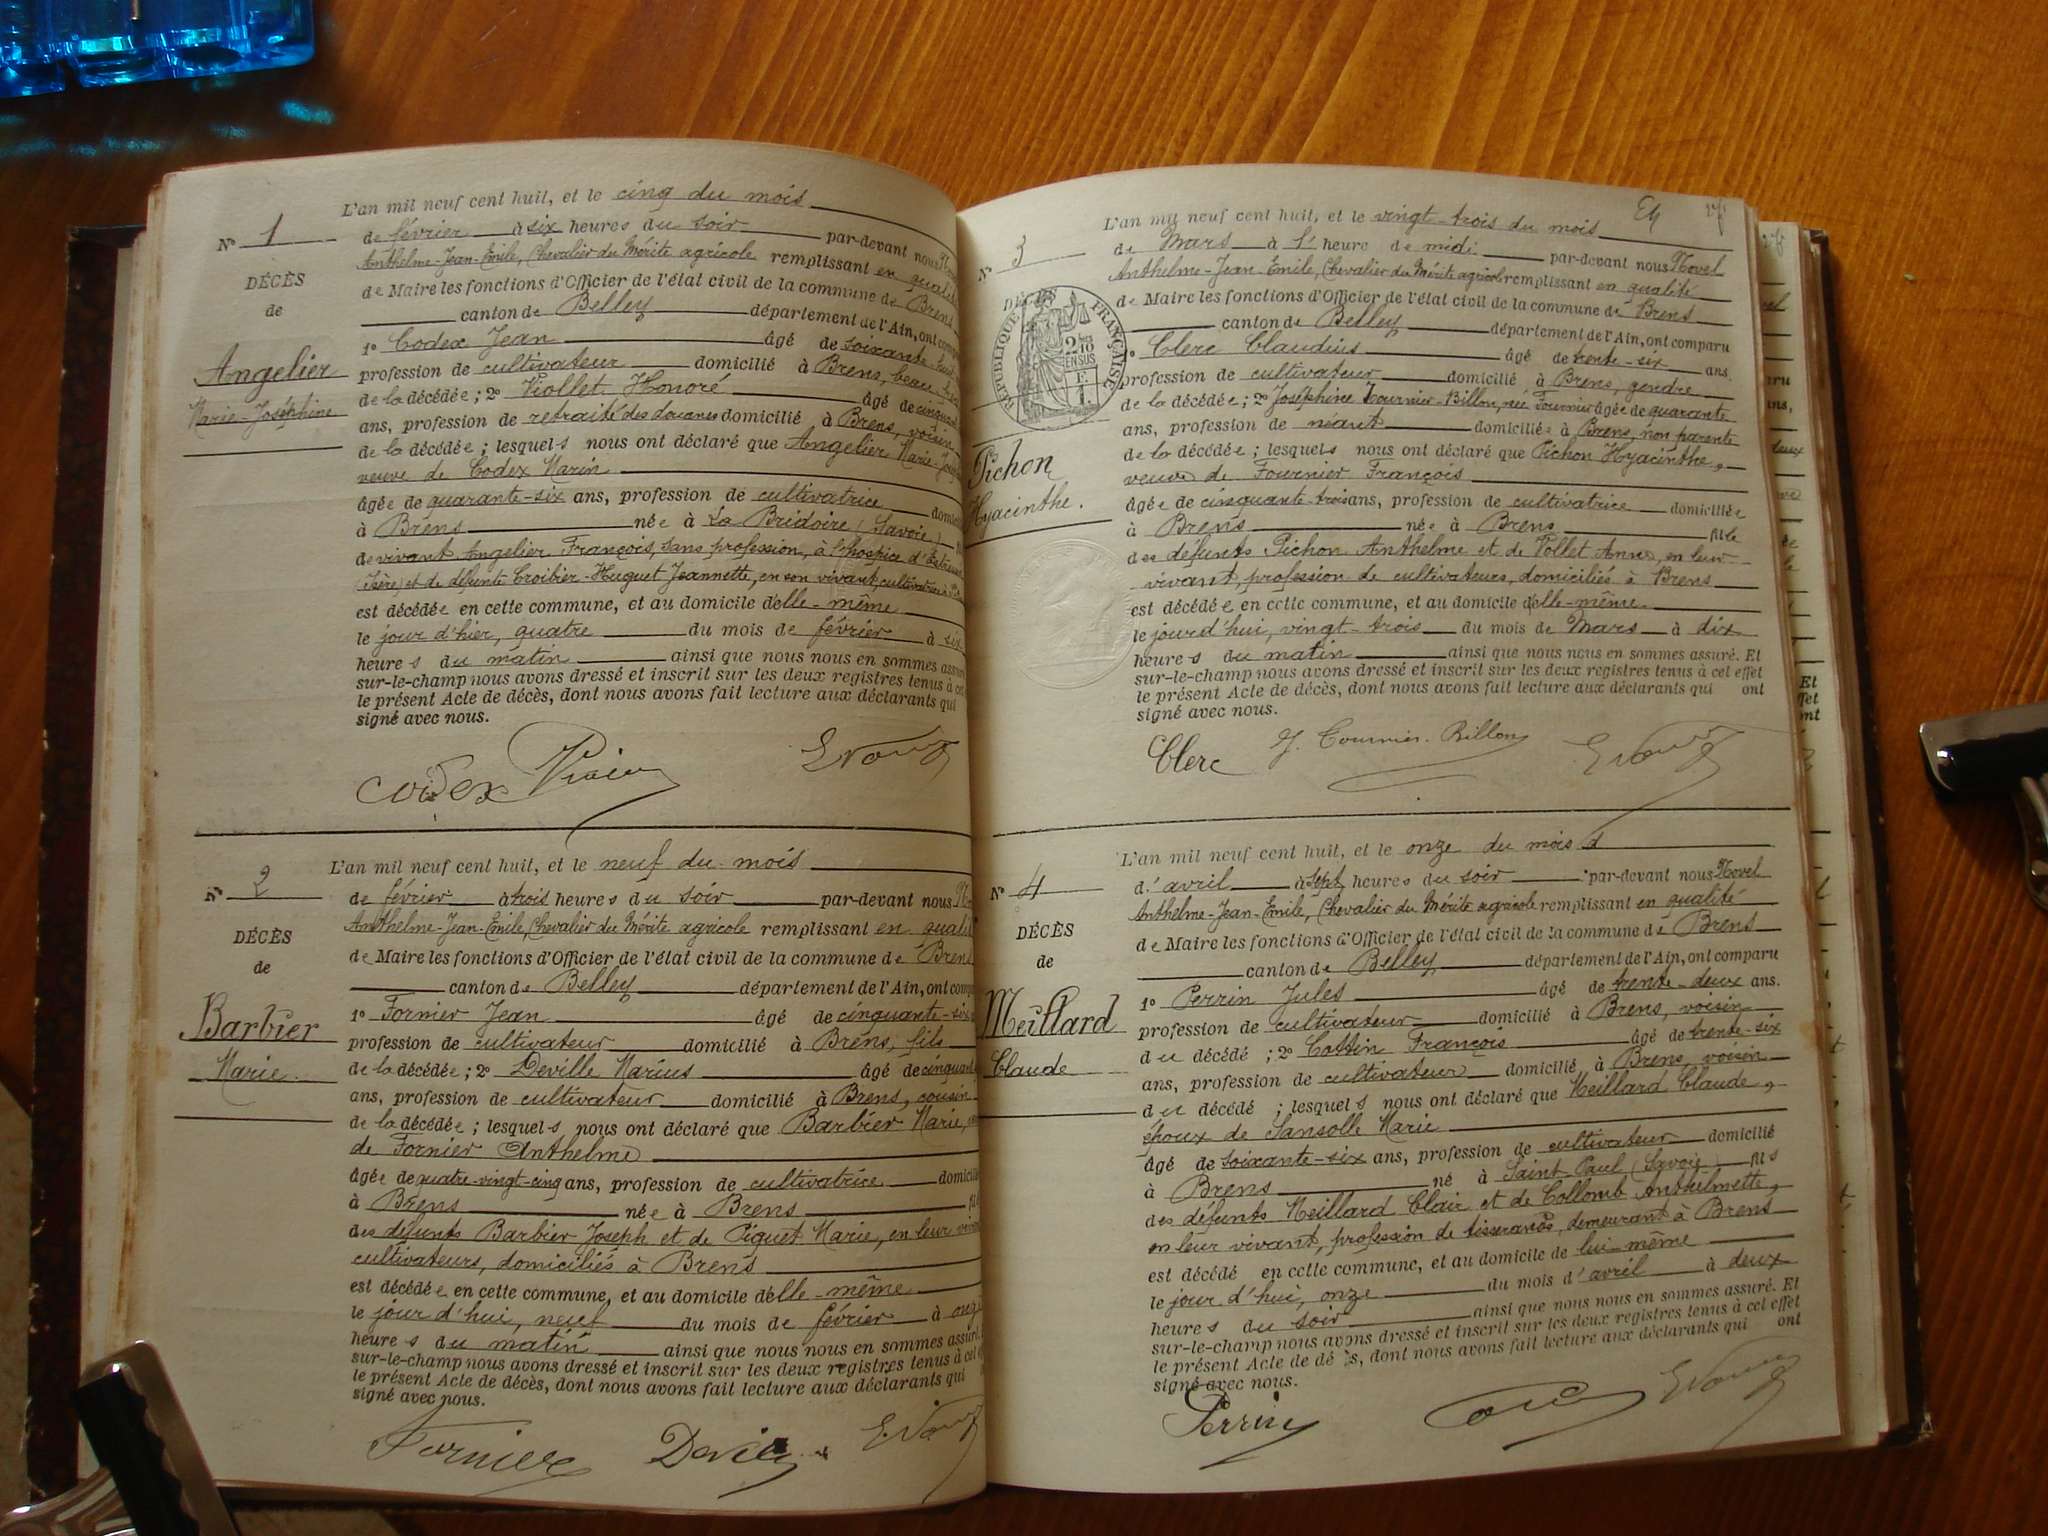 L'an mil neuf cent huit, et le cinq du mois
N° 1
de février à six heures du soir par-devant nous
Anthelme-Jean-Emile, Chevalier du Mérite agricole remplissant en qualité
DÉCÈS
de Maire les fonctions d'Officier de l'état civil de la commune de Brens
de
canton de Belley département de l'Ain, ont comp
1° Codex Jean âgé de soixante-
Angelier
profession de cultivateur domicilié à Brens, beau-
Marie-Joséphine
de la décédée ; 2° Viollet Honoré âgé de cinquante
ans, profession de retraité des douanes domicilié à Brens, voisin
de la décédée ; lesquels nous ont déclaré que Angelier Marie-José
veuve de Codex Marin
âgée de quarante-six ans, profession de cultivatrice domici
à Brens née à La Bridoire (Savoie) fi
de vivant Angelier François, sans profession, à l'hospice d'
(Isère) et de défunte Croibier-Huguet Jeannette, en son vivant, cultivatrice à
est décédée en cette commune, et au domicile d'elle-même
le jour d'hier, quatre du mois de février à six
heures du matin ainsi que nous nous en sommes assuré
sur-le-champ nous avons dressé et inscrit sur les deux registres tenus à cet
le présent Acte de décès, dont nous avons fait lecture aux déclarants qui
signé avec nous.
codex
L'an mil neuf cent huit, et le neuf du mois
N° 2
de février à trois heures du soir par-devant nous
Anthelme-Jean-Emile, Chevalier du Mérite agricole remplissant en quali
DÉCÈS
de Maire les fonctions d'Officier de l'état civil de la commune de Brens
de
canton de Belley département de l'Ain, ont comp
1° Fornier Jean âgé de cinquante-six
Barbier
profession de cultivateur domicilié à Brens, fils
Marie.
de la décédée ; 2° Deville Marius âgé de cinquante
ans, profession de cultivateur domicilié à Brens, cousin
de la décédée ; lesquels nous ont déclaré que Barbier Marie,
de Fornier Anthelme
âgée de quatre-vingt-cinq ans, profession de cultivatrice domici
à Brens née à Brens fil
des défunts Barbier Joseph et de Piguet Marie, en leur vivant
cultivateurs, domiciliés à Brens
est décédée en cette commune, et au domicile d'elle-même
le jour d'hui, neuf du mois de février à onze
heures du matin ainsi que nous nous en sommes assuré
sur-le-champ nous avons dressé et inscrit sur les deux registres tenus à cet
le présent Acte de décès, dont nous avons fait lecture aux déclarants qui
signé avec nous.
Fornier
L'an mil neuf cent huit, et le vingt-trois du mois
N° 3
de Mars à l'heure de midi par-devant nous Novel
Anthelme-Jean-Emile, Chevalier du Mérite agricole remplissant en qualité
DÉCÈS
RÉPUBLIQUE FRANÇAISE
de Maire les fonctions d'Officier de l'état civil de la commune de Brens
canton de Belley département de l'Ain, ont comparu
1° Clerc Claudius âgé de trente-six ans.
profession de cultivateur domicilié à Brens, gendre
de la décédée ; 2° Joséphine Tournier-Billon, née Fournier âgée de quarante
ans, profession de néant domiciliée à Brens, non parente
Pichon
de la décédée ; lesquels nous ont déclaré que Pichon Hyacinthe,
Hyacinthe.
veuve de Fournier François
âgée de cinquante-trois ans, profession de cultivatrice domiciliée
à Brens née à Brens fille
des défunts Pichon Anthelme et de Vollet Anne, en leur
vivant, profession de cultivateurs, domiciliés à Brens
est décédée en cette commune, et au domicile d'elle-même.
le jour d'hui, vingt-trois du mois de Mars à dix
heures du matin ainsi que nous nous en sommes assuré. Et
sur-le-champ nous avons dressé et inscrit sur les deux registres tenus à cet effet
le présent Acte de décès, dont nous avons fait lecture aux déclarants qui ont
signé avec nous.
Clerc J. Tournier-Billon
L'an mil neuf cent huit, et le onze du mois d
N° 4
d'avril à sept heures du soir par-devant nous Novel
Anthelme-Jean-Emile, Chevalier du Mérite agricole remplissant en qualité
DÉCÈS
de Maire les fonctions d'Officier de l'état civil de la commune de Brens
de
canton de Belley département de l'Ain, ont comparu
1° Perrin Jules âgé de trente-deux ans.
Meillard
profession de cultivateur domicilié à Brens, voisin
Claude
du décédé ; 2° Cottin François âgé de trente-six
ans, profession de cultivateur domicilié à Brens, voisin
du décédé ; lesquels nous ont déclaré que Meillard Claude,
époux de Sansolle Marie
âgé de soixante-six ans, profession de cultivateur domicilié
à Brens né à Saint Paul (Savoie) fils
des défunts Meillard Clair et de Collomb Anthelmette,
en leur vivant, profession de tisserands, demeurant à Brens
est décédé en cette commune, et au domicile de lui-même
le jour d'hui, onze du mois d'avril à deux
heures du soir ainsi que nous nous en sommes assuré. Et
sur-le-champ nous avons dressé et inscrit sur les deux registres tenus à cet effet
le présent Acte de décès, dont nous avons fait lecture aux déclarants qui ont
signé avec nous.
Perrin